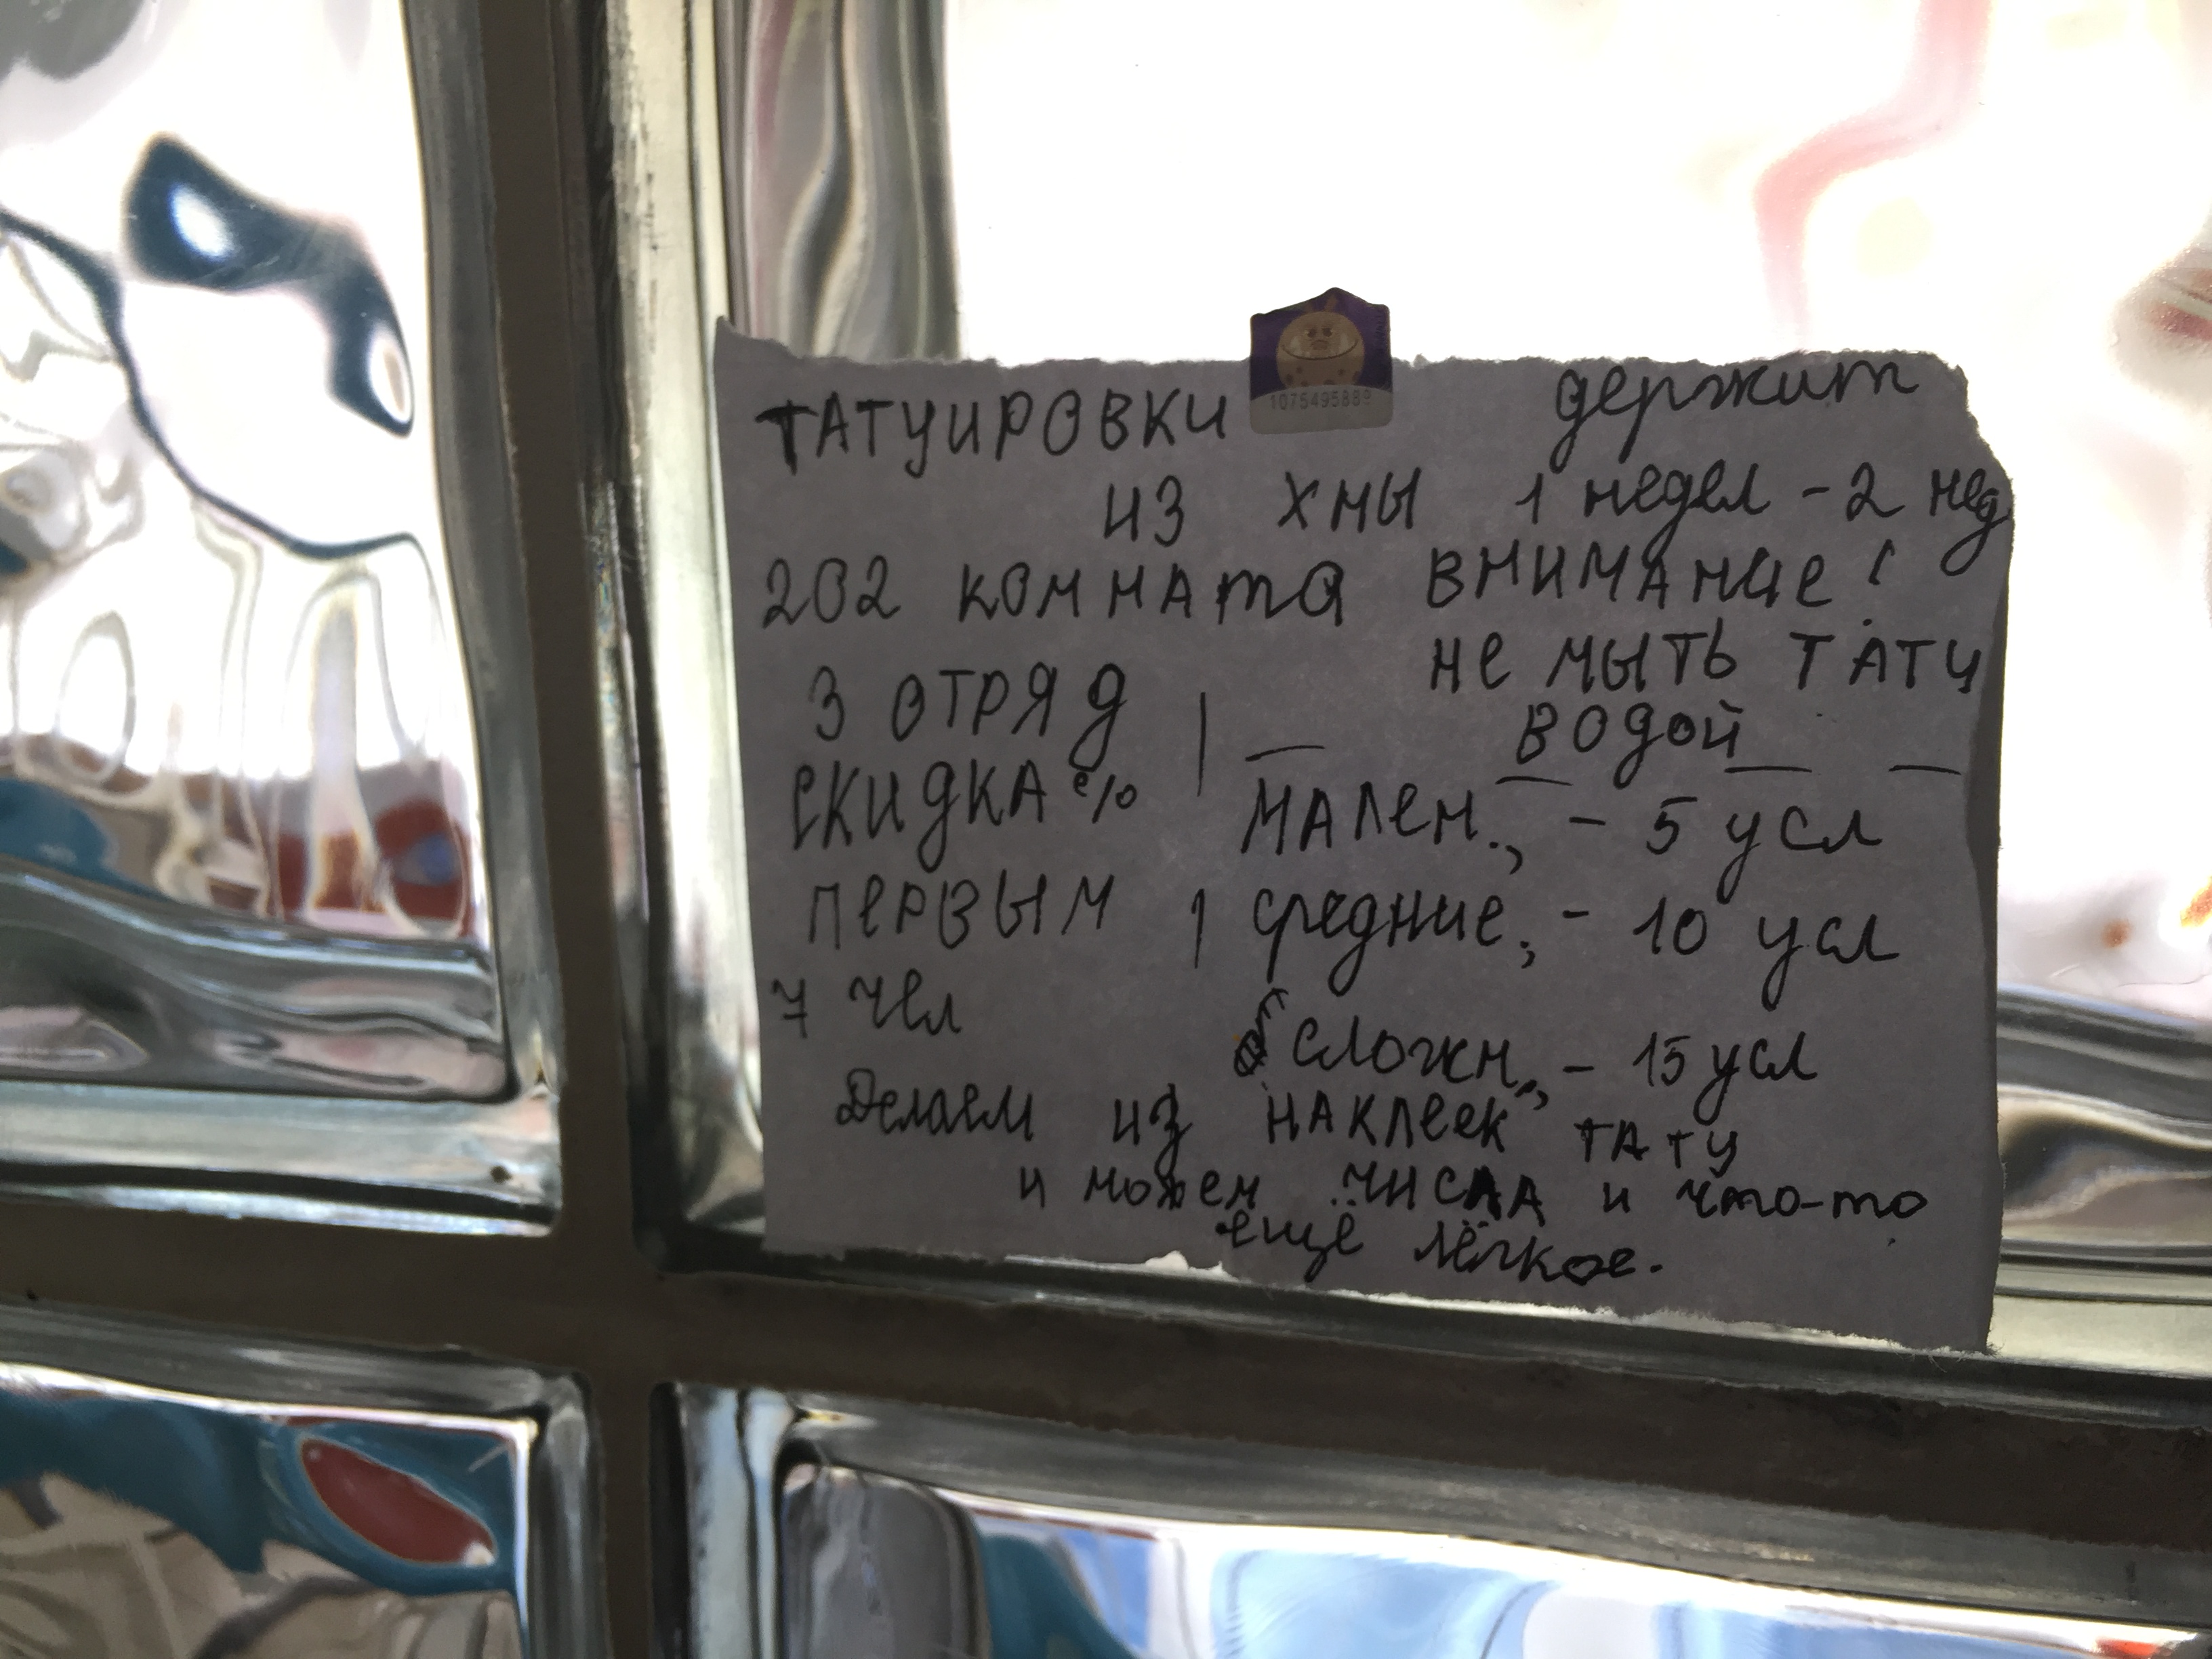 ТАТУИРОВКИ держит
ИЗ ХНЫ 1 недел - 2 нед
202 комната ВНИМАНИЕ!
3 ОТРЯД не мыть ТАТУ
водой
СКИДКА %
МАЛен., - 5 усл
ПЕРВЫМ
средние, - 10 усл
7 чел
сложн., - 15 усл
Делаем из НАКЛеек ТАТУ
и можем числА и что-то
ещё лёгкое.
1075495889